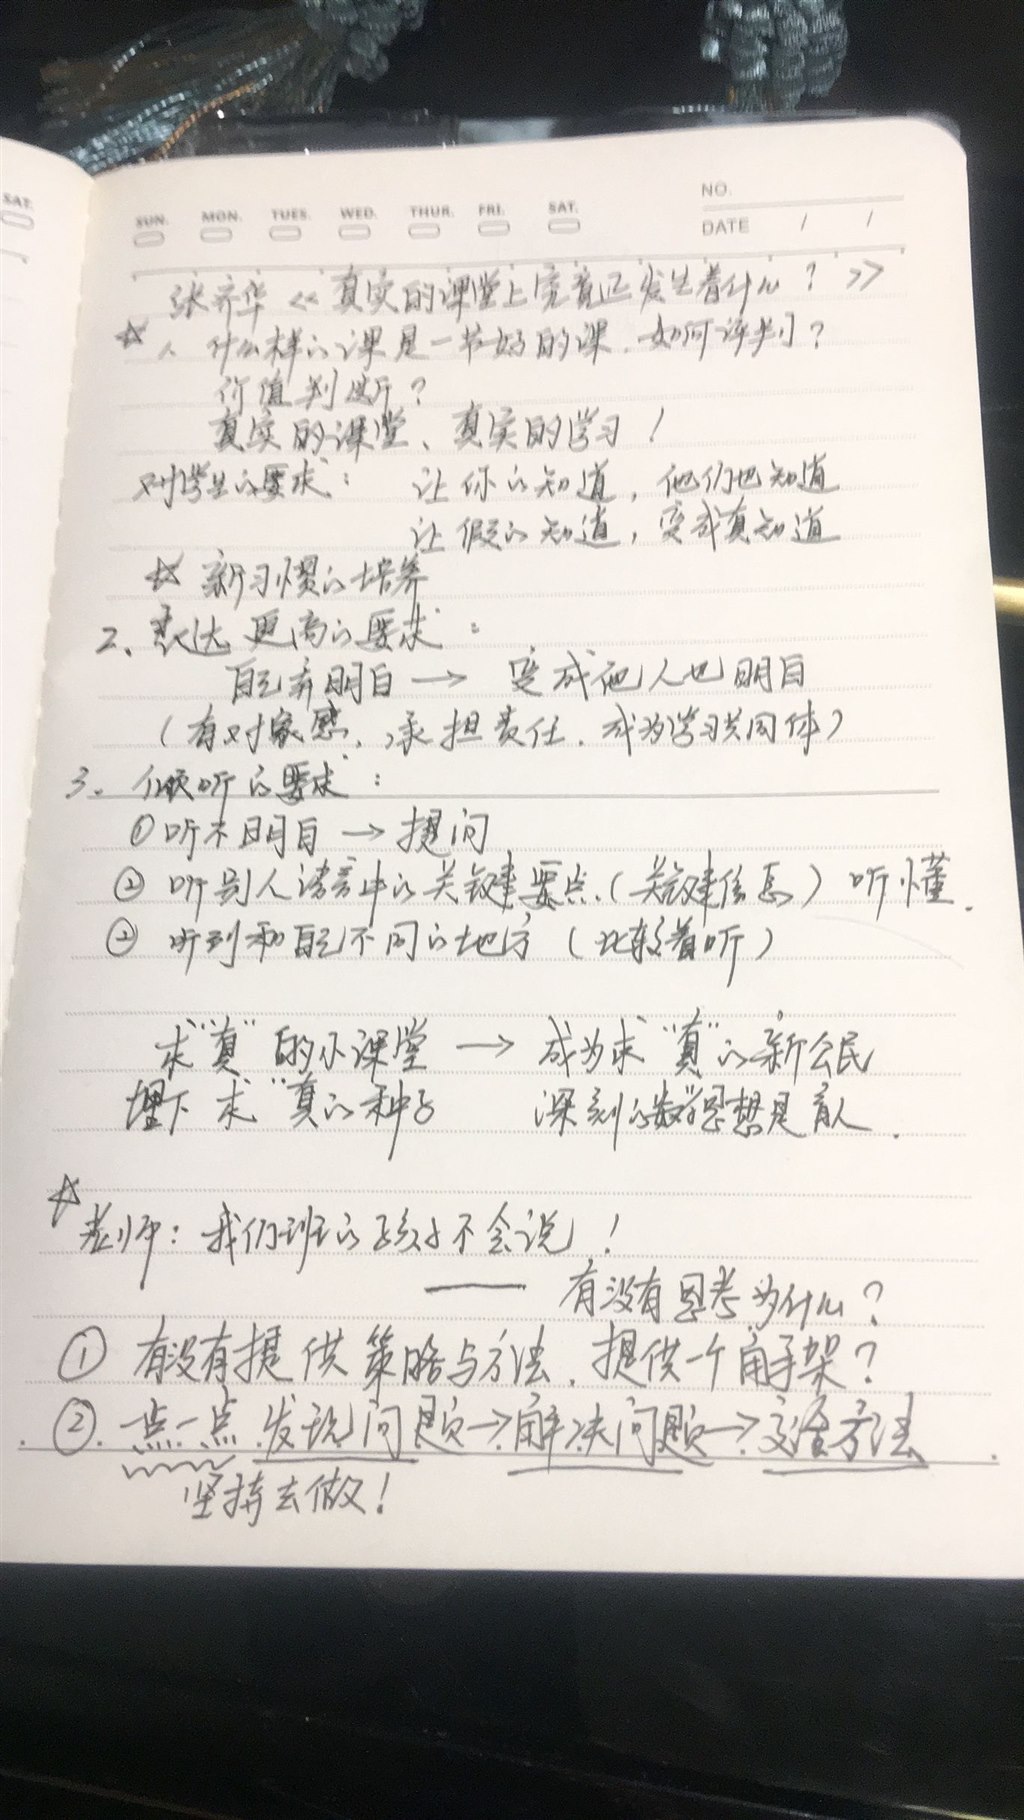 SAT.
SUN. MON. TUES. WED. THUR. FRI. SAT.
NO.
DATE / /
张齐华《真实的课堂上究竟正发生着什么？》
☆ 1、什么样的课是一节好的课，如何评判？
价值判断？
真实的课堂、真实的学习！
对学生的要求： 让你的知道，他们也知道
让假的知道，变成真知道
☆ 新习惯的培养
2、表达更高的要求：
自己弄明白 → 变成他人也明白
（有对象感，承担责任，成为学习共同体）
3、倾听的要求：
①听不明白 → 提问
② 听别人语言中的关键要点（关键信息）听懂．
② 听到和自己不同的地方（比较着听）
求“真”的小课堂 → 成为求“真”的新公民
埋下求“真的种子 深刻的数学思想是育人．
☆
老师：我们班的孩子不会说！
—— 有没有思考为什么？
① 有没有提供策略与方法，提供一个脚手架？
② 一点一点发现问题→解决问题→ 方法
坚持去做！